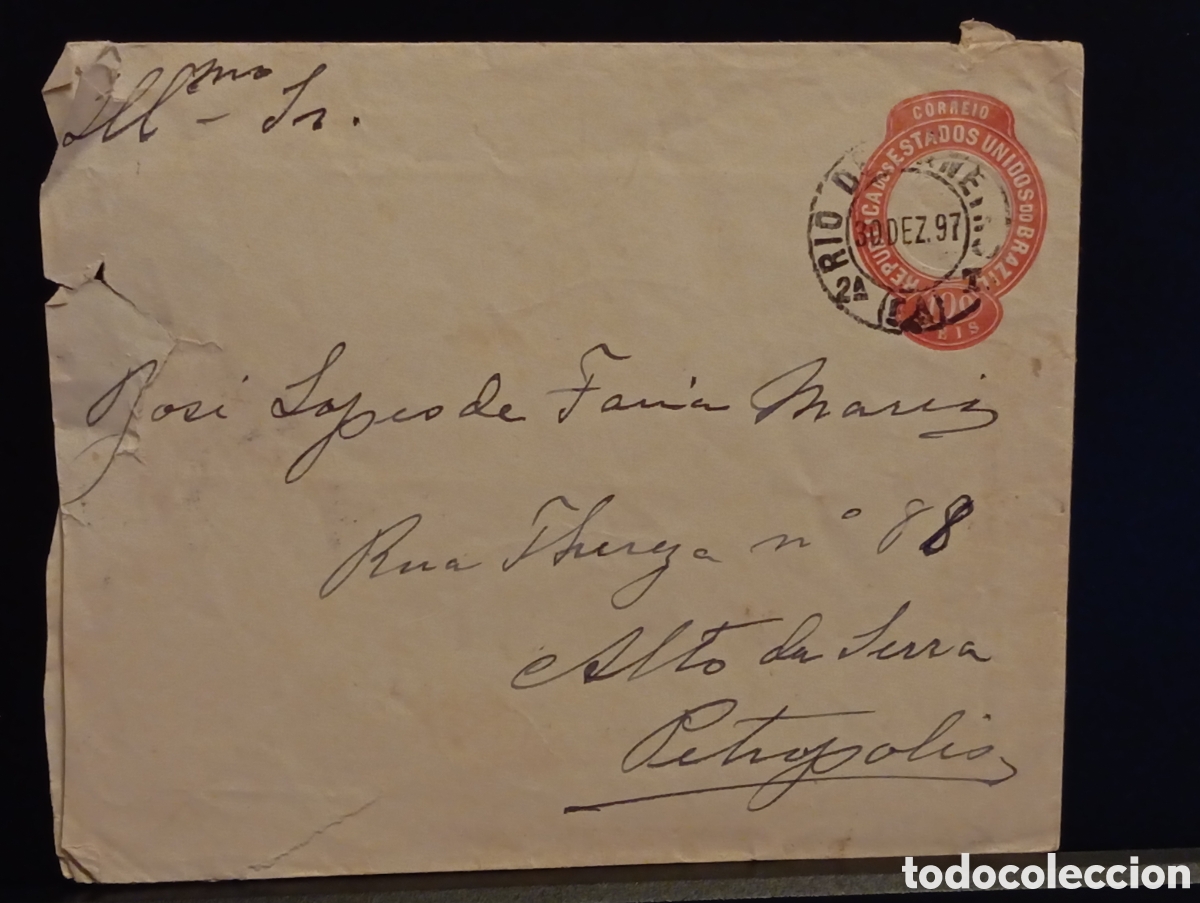 Illmo Sr.
CORREIO
REPUBLICA DOS ESTADOS UNIDOS DO BRAZIL
REIS
RIO DE JANEIRO
30 DEZ. 97
2A
José Lopes de Faria
Rua Thereza nº 88
Alto da Serra
Petropolis
todocoleccion